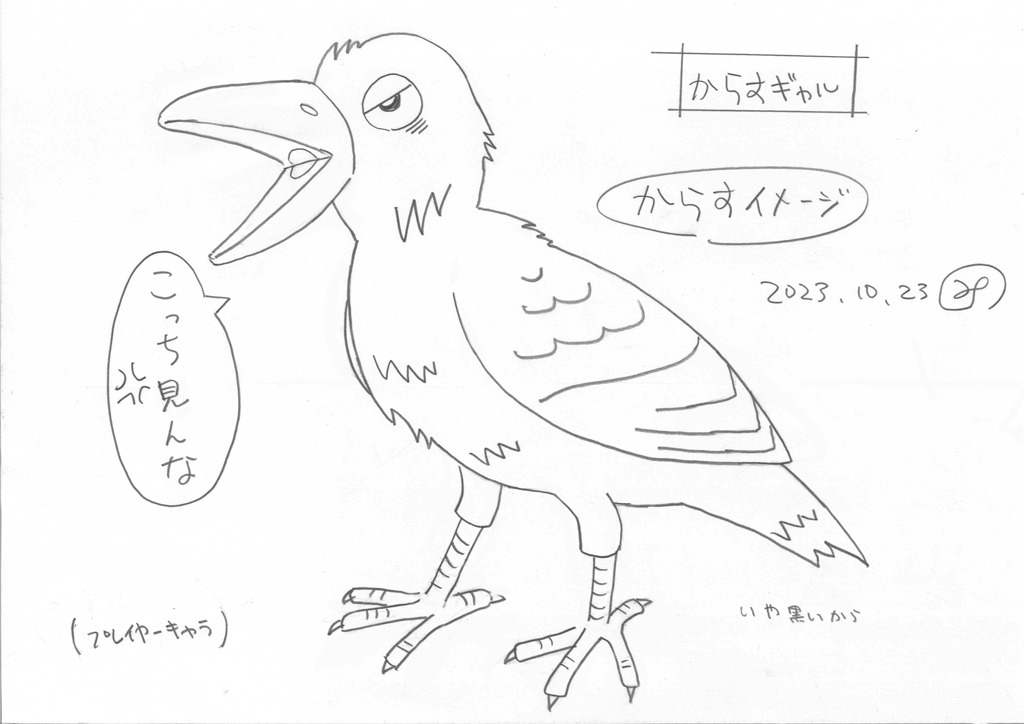 からすギャル
からすイメージ
2023.10.23
こっち見んな
(プレイヤーキャラ)
いや黒いから